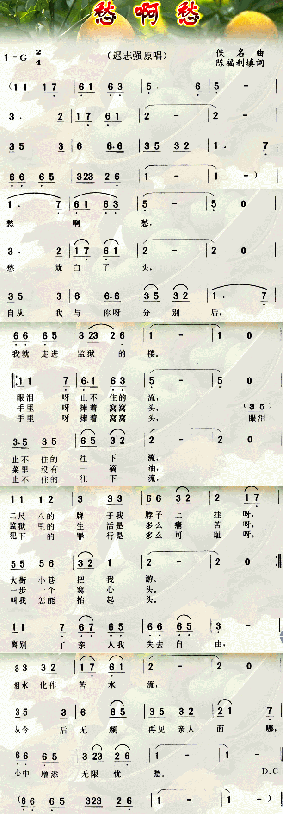 愁啊愁
1=G 2/4
(迟志强原唱)
佚名曲
陈福利填词
(1 1 1 7 | 6 1 6 3 | 5 · 6 5 |
3 · 2 | 1 1 7 6 1 | 2 - | 2 - |
3 5 3 | 6 6·6 | 3 5 3 2 | 1 · 7 |
6 6 6 5 | 3 2 3 2 6 | 1 - | 1 - )
1 · 7 | 6 1 6 3 | 5 - | 5 - |
愁 啊 愁,
3 · 2 | 1 1 7 6 1 | 2 - | 2 0 |
愁 就 白 了 头,
3 5 3 | 6 6·6 | 3 5 3 2 | 1 · 7 |
自从 我 与 你呀 分 别 后,
6 6 6 5 | 3 2 3 2 6 | 1 - | 1 0 |
我就 走进 监狱 的 楼。
1 1 7 | 6·1 6 3 | 5 - | 5 0 |
眼泪 呀 止不 住的 流,
手里 呀 捧着 窝窝 头,
手里 呀 捧着 窝窝 头, 眼泪
3·5 3 5 | 6 5 3 2 | 2 - | 2 - |
止不 住的 往 下 流,
菜里 没有 一 滴 油,
止不 住的 往 下 流,
1 1 1 1 | 3 3 3 | 6 6 3 2 | 2 1 7 |
二尺 八的 牌子 我 脖子 上 挂 呀,
监狱 里的 生活 是 多么 痛 苦 呀,
犯下 的 罪行 是 多么 可 耻 呀,
5 5 5 6 | 3 3 2 | 1 2 | 2 0 |
大街 小巷 把 我 游,
一步 一个 窝 心 头,
叫我 怎能 抬 起 头,
1 1 7 | 6 7 6 5 | 6 6 6 5 | 3 0 |
离别 了 亲 人我 失去 自 由,
3 3 3 2 | 1 7 6 1 | 2 - | 2 0 |
泪水 化作 苦 水 流,
3 5 3 | 6 6 5 | 3 5 3 2 | 2 1 7 |
从今 后 无 颜 再见 亲人 面 哪,
6 6 6 5 | 3 2 3 2 6 | 1 - | 1 0 |
心中 增添 无限 忧 愁。 D.C
(6 6 6 5 | 3 2 3 2 6 | 1 - | 1 - )